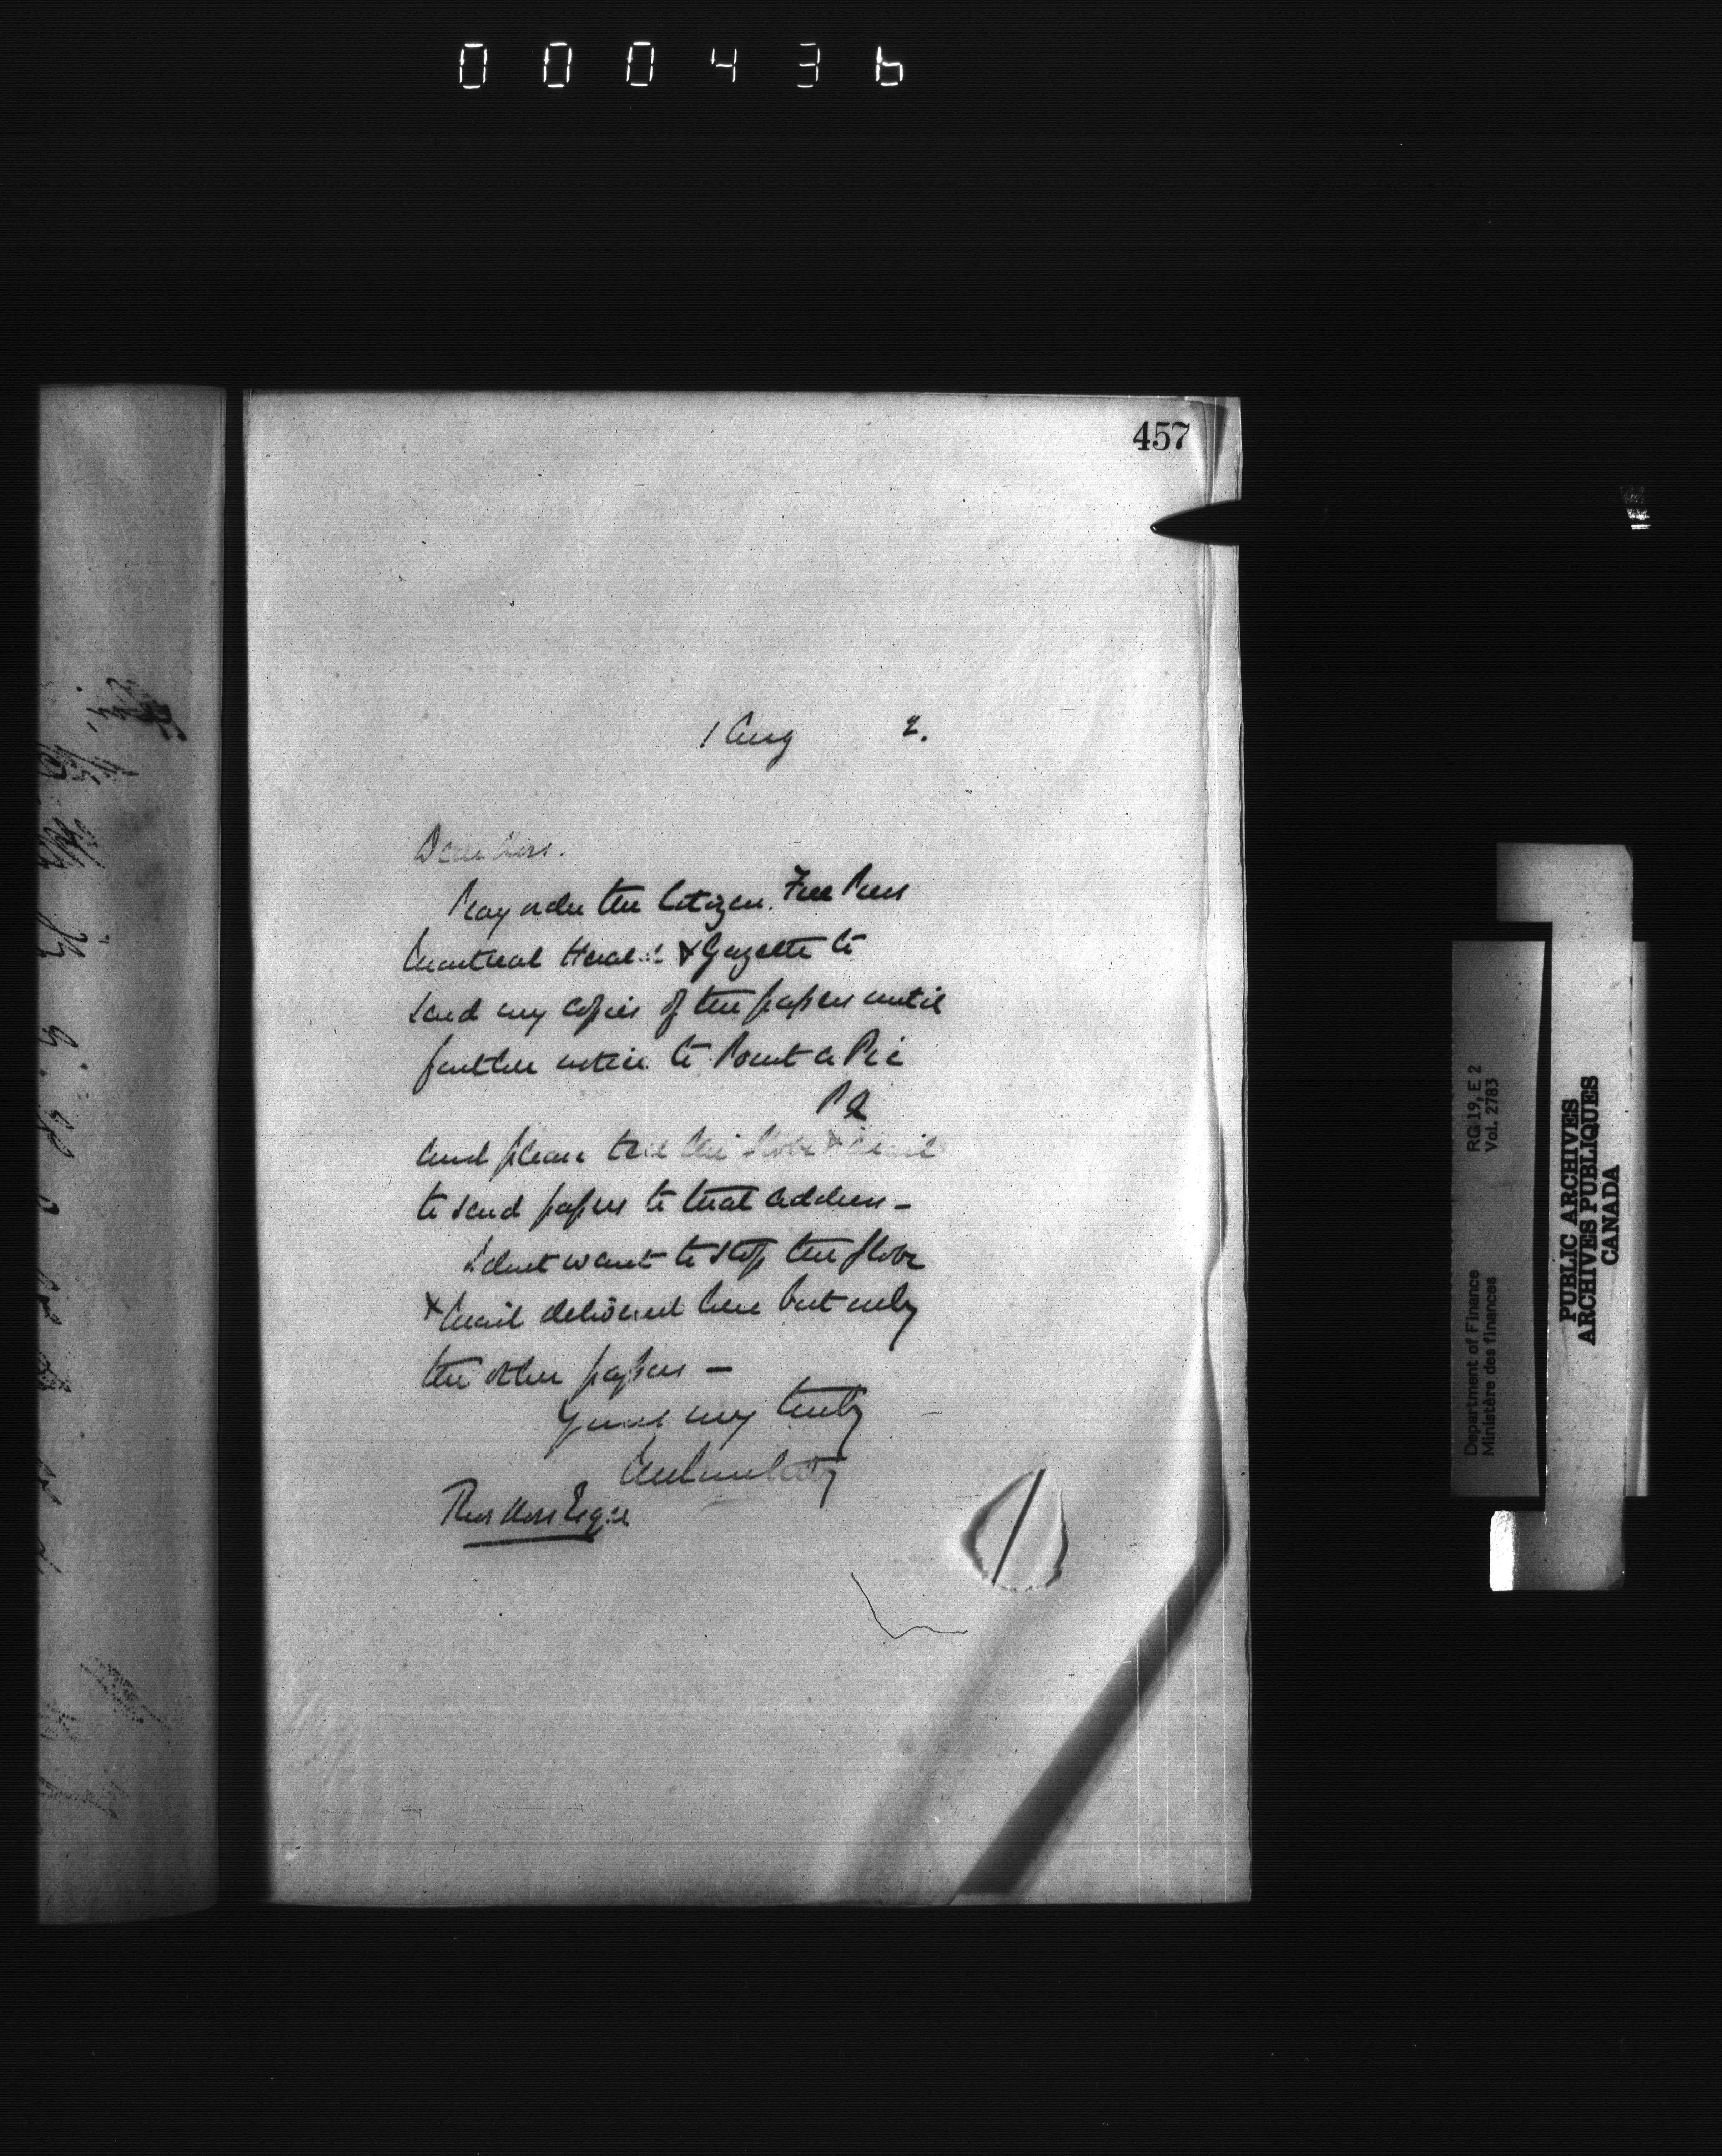 000436
457
1 Aug 2.
Dear Ross.
Pray order the Citizen. Free Press
Montreal Herald & Gazette to
send my copies of the papers until
further notice to Point a Pic
P Q
And please tell the Globe & Mail
to send papers to that address -
I dont want to stop the Globe
& Mail delivered here but only
the other papers -
Yours very truly
Ross Esqre
Department of Finance RG 19, E 2
Ministère des finances Vol. 2783
PUBLIC ARCHIVES
ARCHIVES PUBLIQUES
CANADA